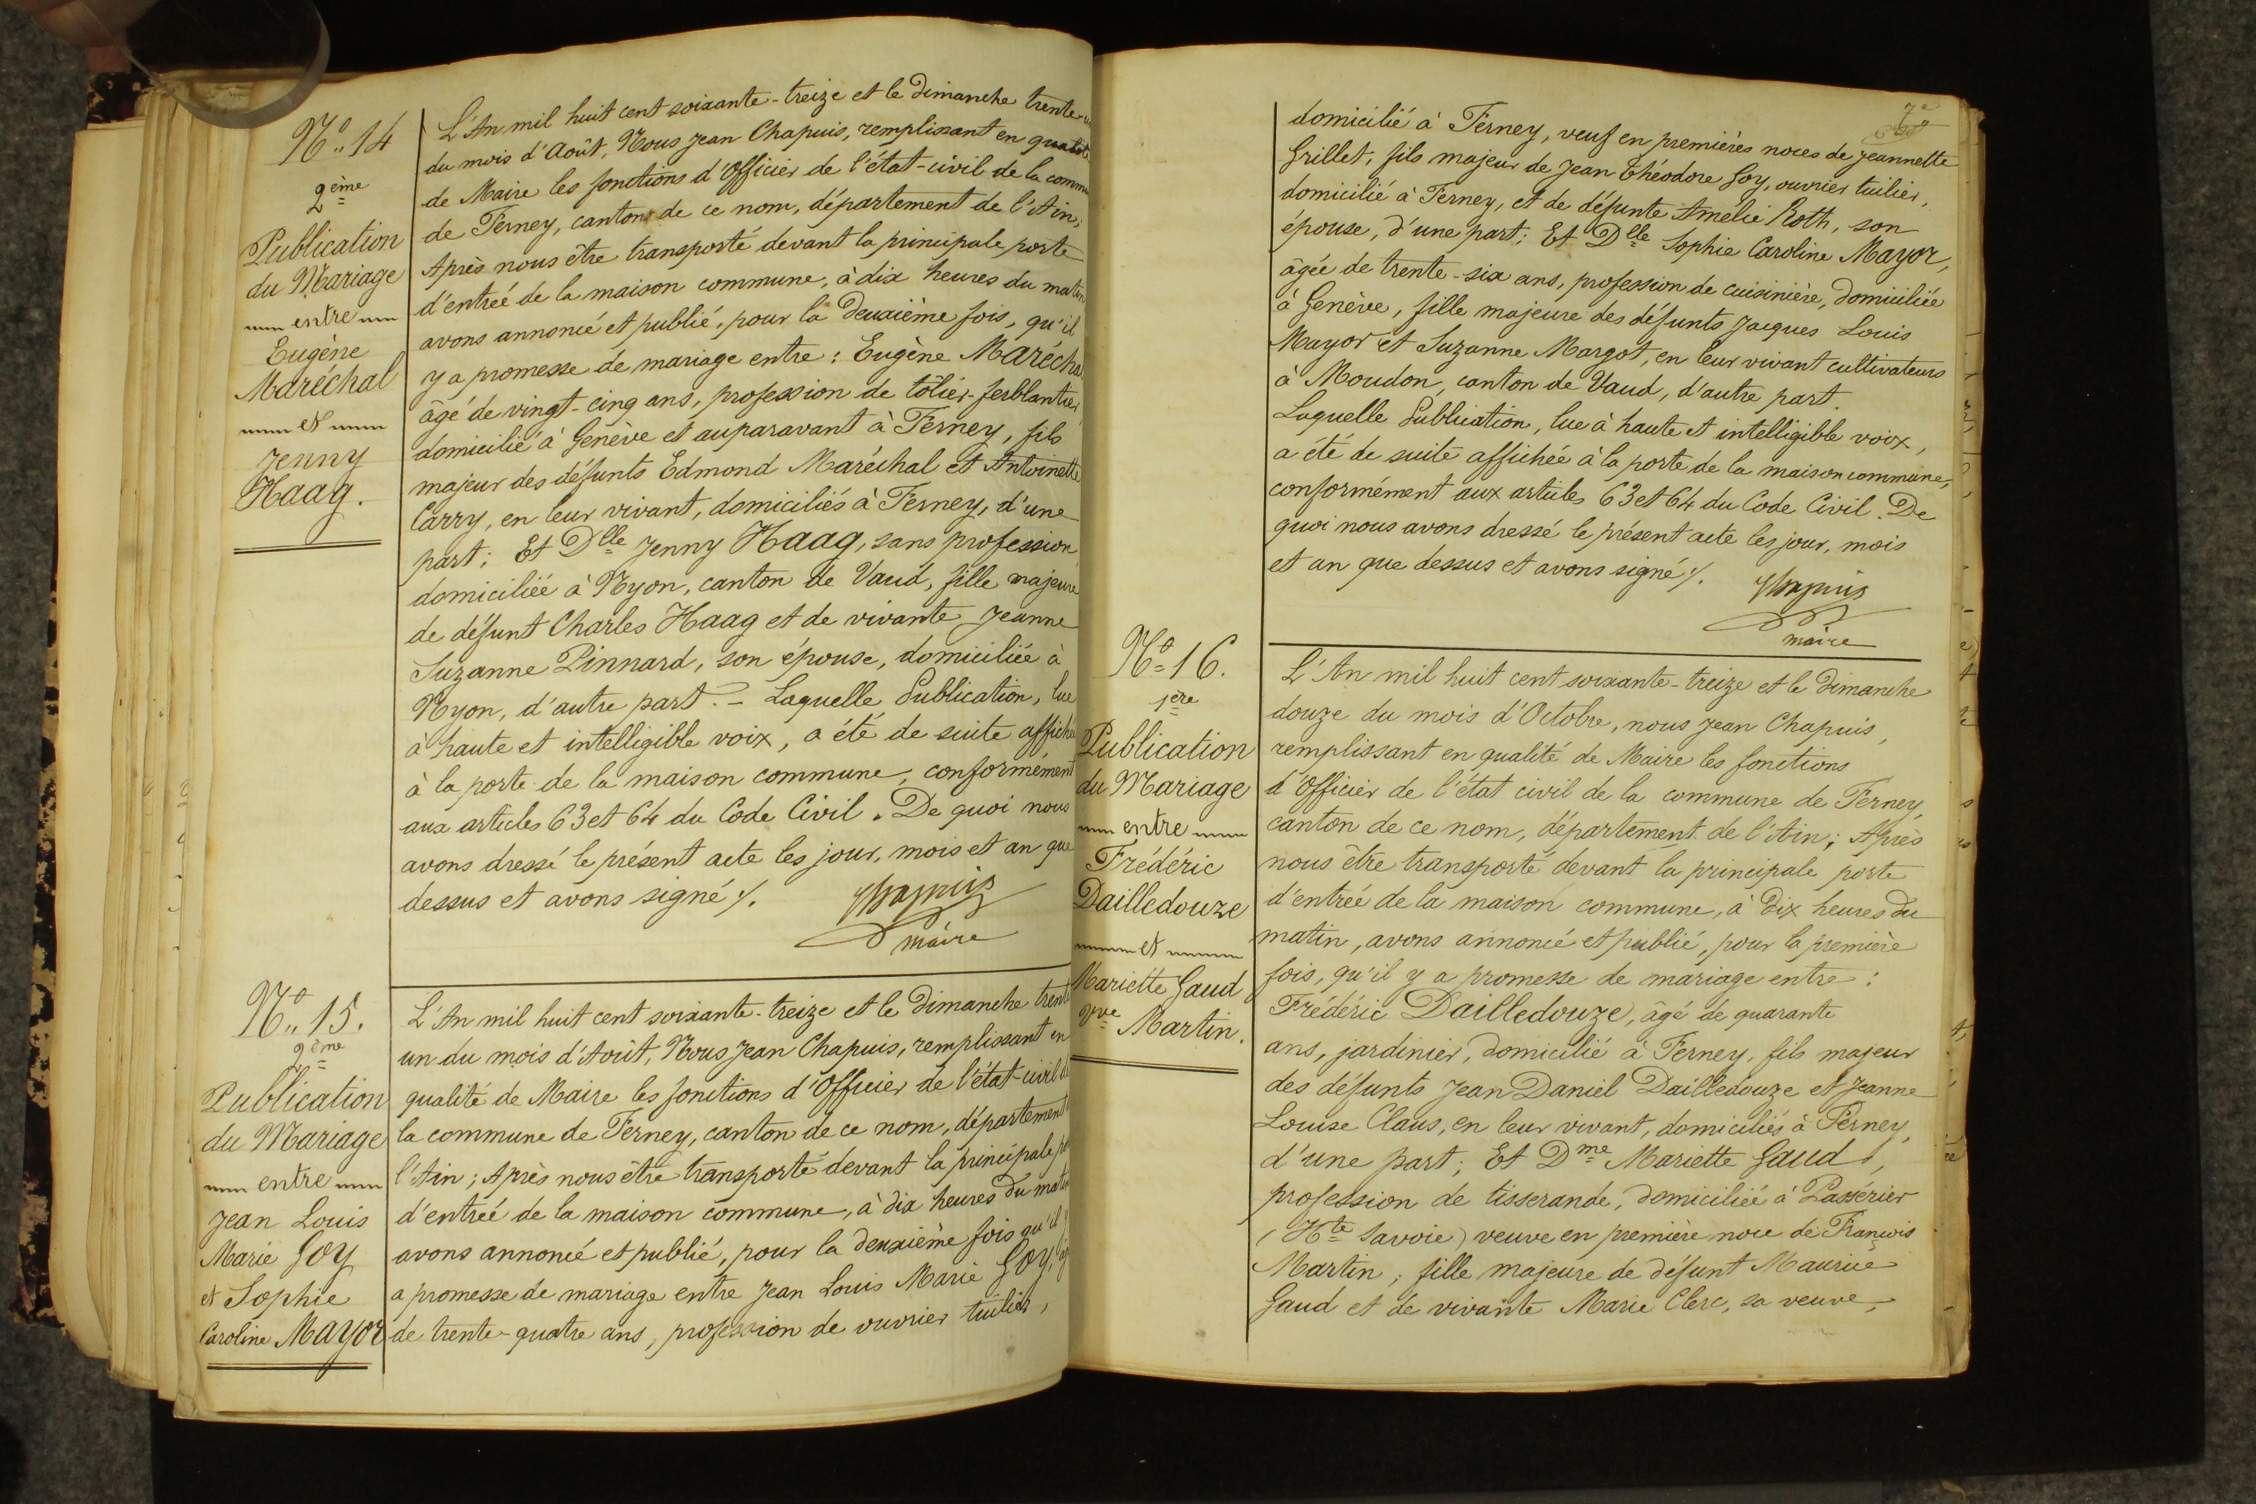 No. 14
2ème
Publication
du Mariage
entre
Eugène
Maréchal
et
Jenny
Haag.
L'An mil huit cent soixante-treize et le Dimanche trente
du mois d'Août, Nous Jean Chapuis, remplissant en qualité
de Maire les fonctions d'Officier de l'état-civil de la commu
de Ferney, canton de ce nom, département de l'Ain;
Après nous être transporté devant la principale porte
d'entrée de la maison commune, à dix heures du matin
avons annoncé et publié, pour la Deuxième fois, qu'il
y a promesse de mariage entre: Eugène Marécha
âgé de vingt-cinq ans, profession de tôlier-ferblantier,
domicilié à Genève et auparavant à Ferney, fils
majeur des défunts Edmond Maréchal et Antoinette
Carry, en leur vivant, domiciliés à Ferney, d'une
part; Et Dlle Jenny Haag, sans profession
domiciliée à Nyon, canton de Vaud, fille majeure
de défunt Charles Haag et de vivante Jeanne
Suzanne Pinnard, son épouse, domiciliée à
Nyon, d'autre part. - Laquelle Publication, lue
à haute et intelligible voix, a été de suite affiché
à la porte de la maison commune, conformément
aux articles 63 et 64 du Code Civil. De quoi nous
avons dressé le présent acte les jour, mois et an que
dessus et avons signé /.
Chapuis
maire
No. 15.
2ème
Publication
du Mariage
entre
Jean Louis
Marie Goy
et Sophie
Caroline Mayor
L'An mil huit cent soixante-treize et le Dimanche trente
un du mois d'Août, Nous Jean Chapuis, remplissant en
qualité de Maire les fonctions d'Officier de l'état-civil de
la commune de Ferney, canton de ce nom, département
l'Ain; Après nous être transporté devant la principale po
d'entrée de la maison commune, à dix heures du matin
avons annoncé et publié, pour la deuxième fois qu'il y
a promesse de mariage entre Jean Louis Marie Goy, âg
de trente-quatre ans, profession de ouvrier tuilier,
7e
domicilié à Ferney, veuf en premières noces de Jeannette
Grillet, fils majeur de Jean Théodore Goy, ouvrier tuilier,
domicilié à Ferney, et de défunte Amélie Roth, son
épouse, d'une part; Et Dlle Sophie Caroline Mayor,
âgée de trente-six ans, profession de cuisinière, domiciliée
à Genève, fille majeure des défunts Jacques Louis
Mayor et Suzanne Margot, en leur vivant cultivateurs
à Moudon, canton de Vaud, d'autre part.
Laquelle Publication, lue à haute et intelligible voix,
a été de suite affichée à la porte de la maison commune,
conformément aux articles 63 et 64 du Code Civil. De
quoi nous avons dressé le présent acte les jour, mois
et an que dessus et avons signé /.
Chapuis
maire
No 16.
1ère
Publication
du Mariage
entre
Frédéric
Dailledouze
et
Mariette Gaud
Vve Martin.
L'An mil huit cent soixante-treize et le Dimanche
douze du mois d'Octobre, nous Jean Chapuis,
remplissant en qualité de Maire les fonctions
d'Officier de l'état civil de la commune de Ferney,
canton de ce nom, département de l'Ain; Après
nous être transporté devant la principale porte
d'entrée de la maison commune, à dix heures du
matin, avons annoncé et publié, pour la première
fois, qu'il y a promesse de mariage entre:
Frédéric Dailledouze, âgé de quarante
ans, jardinier, domicilié à Ferney, fils majeur
des défunts Jean Daniel Dailledouze et Jeanne
Louise Claus, en leur vivant, domiciliés à Ferney,
d'une part; Et Dme Mariette Gaud,
profession de tisserande, domiciliée à Passérier
(Hte Savoie) veuve en première noce de François
Martin; fille majeure de défunt Maurice
Gaud et de vivante Marie Clerc, sa veuve,